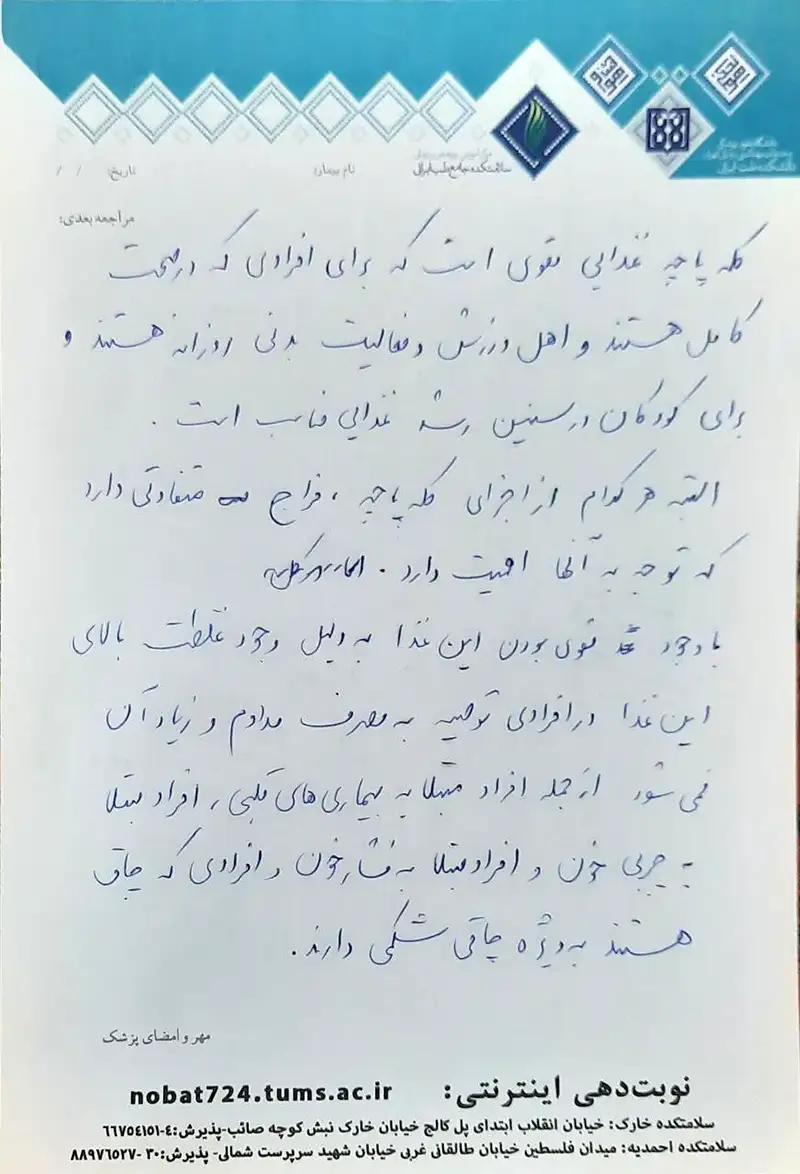 سلامتکده جامع طب ایرانی
نام بیمار:
تاریخ: / /
مراجعه بعدی:
کله پاچه غذایی مقوی است که برای افرادی که در صحت
کامل هستند و اهل ورزش و فعالیت بدنی روزانه هستند و
برای کودکان در سنین رشد غذایی مناسب است .
البته هر کدام از اجزای کله پاچه ، مزاج متفاوتی دارد
که توجه به آنها اهمیت دارد .
با وجود مقوی بودن این غذا به دلیل وجود غلظت بالای
این غذا در افرادی توصیه به مصرف مداوم و زیاد آن
نمی شود از جمله افراد مبتلا به بیماری های قلبی ، افراد مبتلا
به چربی خون و افراد مبتلا به فشار خون و افرادی که چاق
هستند به ویژه چاقی شکمی دارند .
مهر و امضای پزشک
نوبت‌دهی اینترنتی: nobat724.tums.ac.ir
سلامتکده خارک: خیابان انقلاب ابتدای پل کالج خیابان خارک نبش کوچه صائب-پذیرش:۴-۶۶۷۵۴۱۵۱
سلامتکده احمدیه: میدان فلسطین خیابان طالقانی غربی خیابان شهید سرپرست شمالی- پذیرش:۳۰ -۸۸۹۷۶۵۲۷